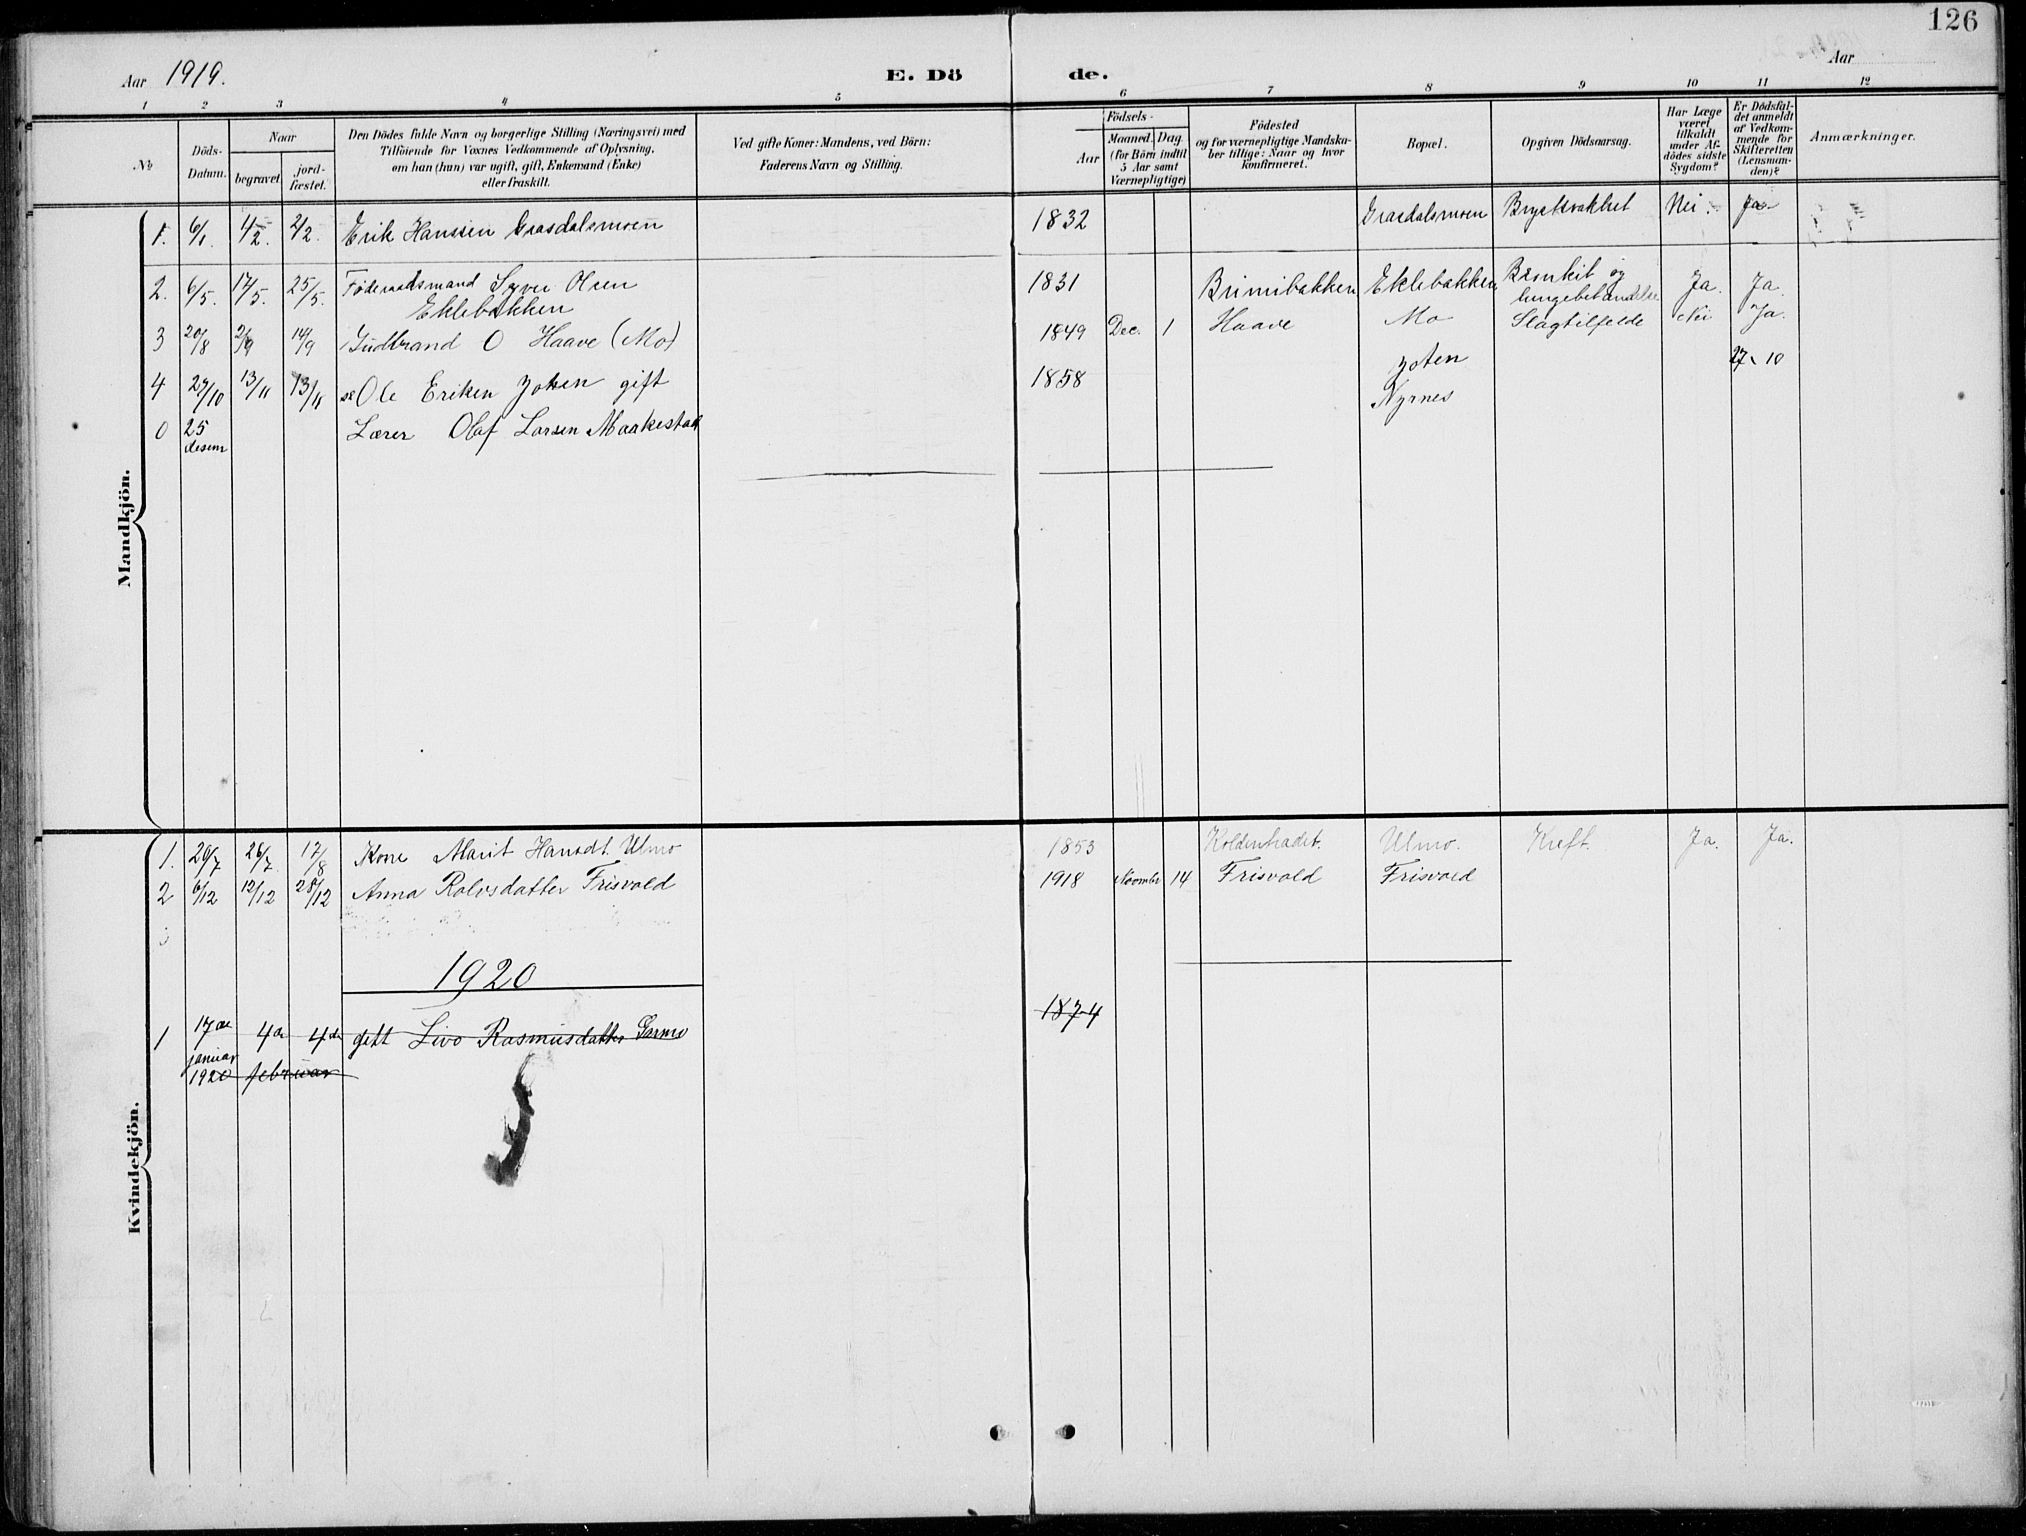 126
Aar 1919.
E. Dö de.
Aar
1 2 3 4 5 6 7 8 9 10 11 12
№
Döds-
Datum.
Naar
begravet.
jord-
fæstet.
Den Dödes fulde Navn og borgerlige Stilling (Næringsvei) med
Tilföiende for Voxnes Vedkommende af Oplysning,
om han (hun) var ugift, gift, Enkemand (Enke)
eller fraskilt.
Ved gifte Koner: Mandens, ved Börn:
Faderens Navn og Stilling.
Födsels-
Aar
Maaned. Dag.
(for Börn indtil
5 Aar samt
Værnepligtige)
Födested
og for værnepligtige Mandska-
ber tillige: Naar og hvor
konfirmeret.
Bopæl.
Opgiven Dödsaarsag.
Har Læge
været
tilkaldt
under Af-
dödes sidste
Sygdom?
Er Dödsfal-
det anmeldt
af Vedkom-
mende for
Skifteretten
(Lensman-
den)?
Anmærkninger.
Mandkjön.
1. 6/1. 4/2. 2/2. Erik Hanssen Grasdalsmoen 1832 Grasdalsmoen Nei. Ja
2. 6/5. 17/5. 25/5. Föderaadsmand Syver Olsen 1831 Brimibakken Eklebakken Bronkit og Ja. Ja.
Eklebakken
3 20/8 2/9 14/9 Gudbrand O Haave (Mo) 1849 Dec. 1 Haave Mo Slagtilfelde Nei Ja.
4 27/10 13/11 13/11 Ole Eriken Joten gift 1858 Joten 27 10
Nyrnes
0 25 Lærer Olaf Larsen Maakestad
desem
Kvindekjön.
1. 20/7 26/7 17/8 Kone Marit Hansdt. Ulmo 1853 Ulmo. Kreft. Ja. Ja.
2 6/12 12/12 28/12 Anna Rolvsdatter Frisvold 1918 Noombr 14 Frisvold Frisvold
3
1920
1 17de 4de 4de gift Livo Rasmusdatter Garmo 1874
januar
1920 februar